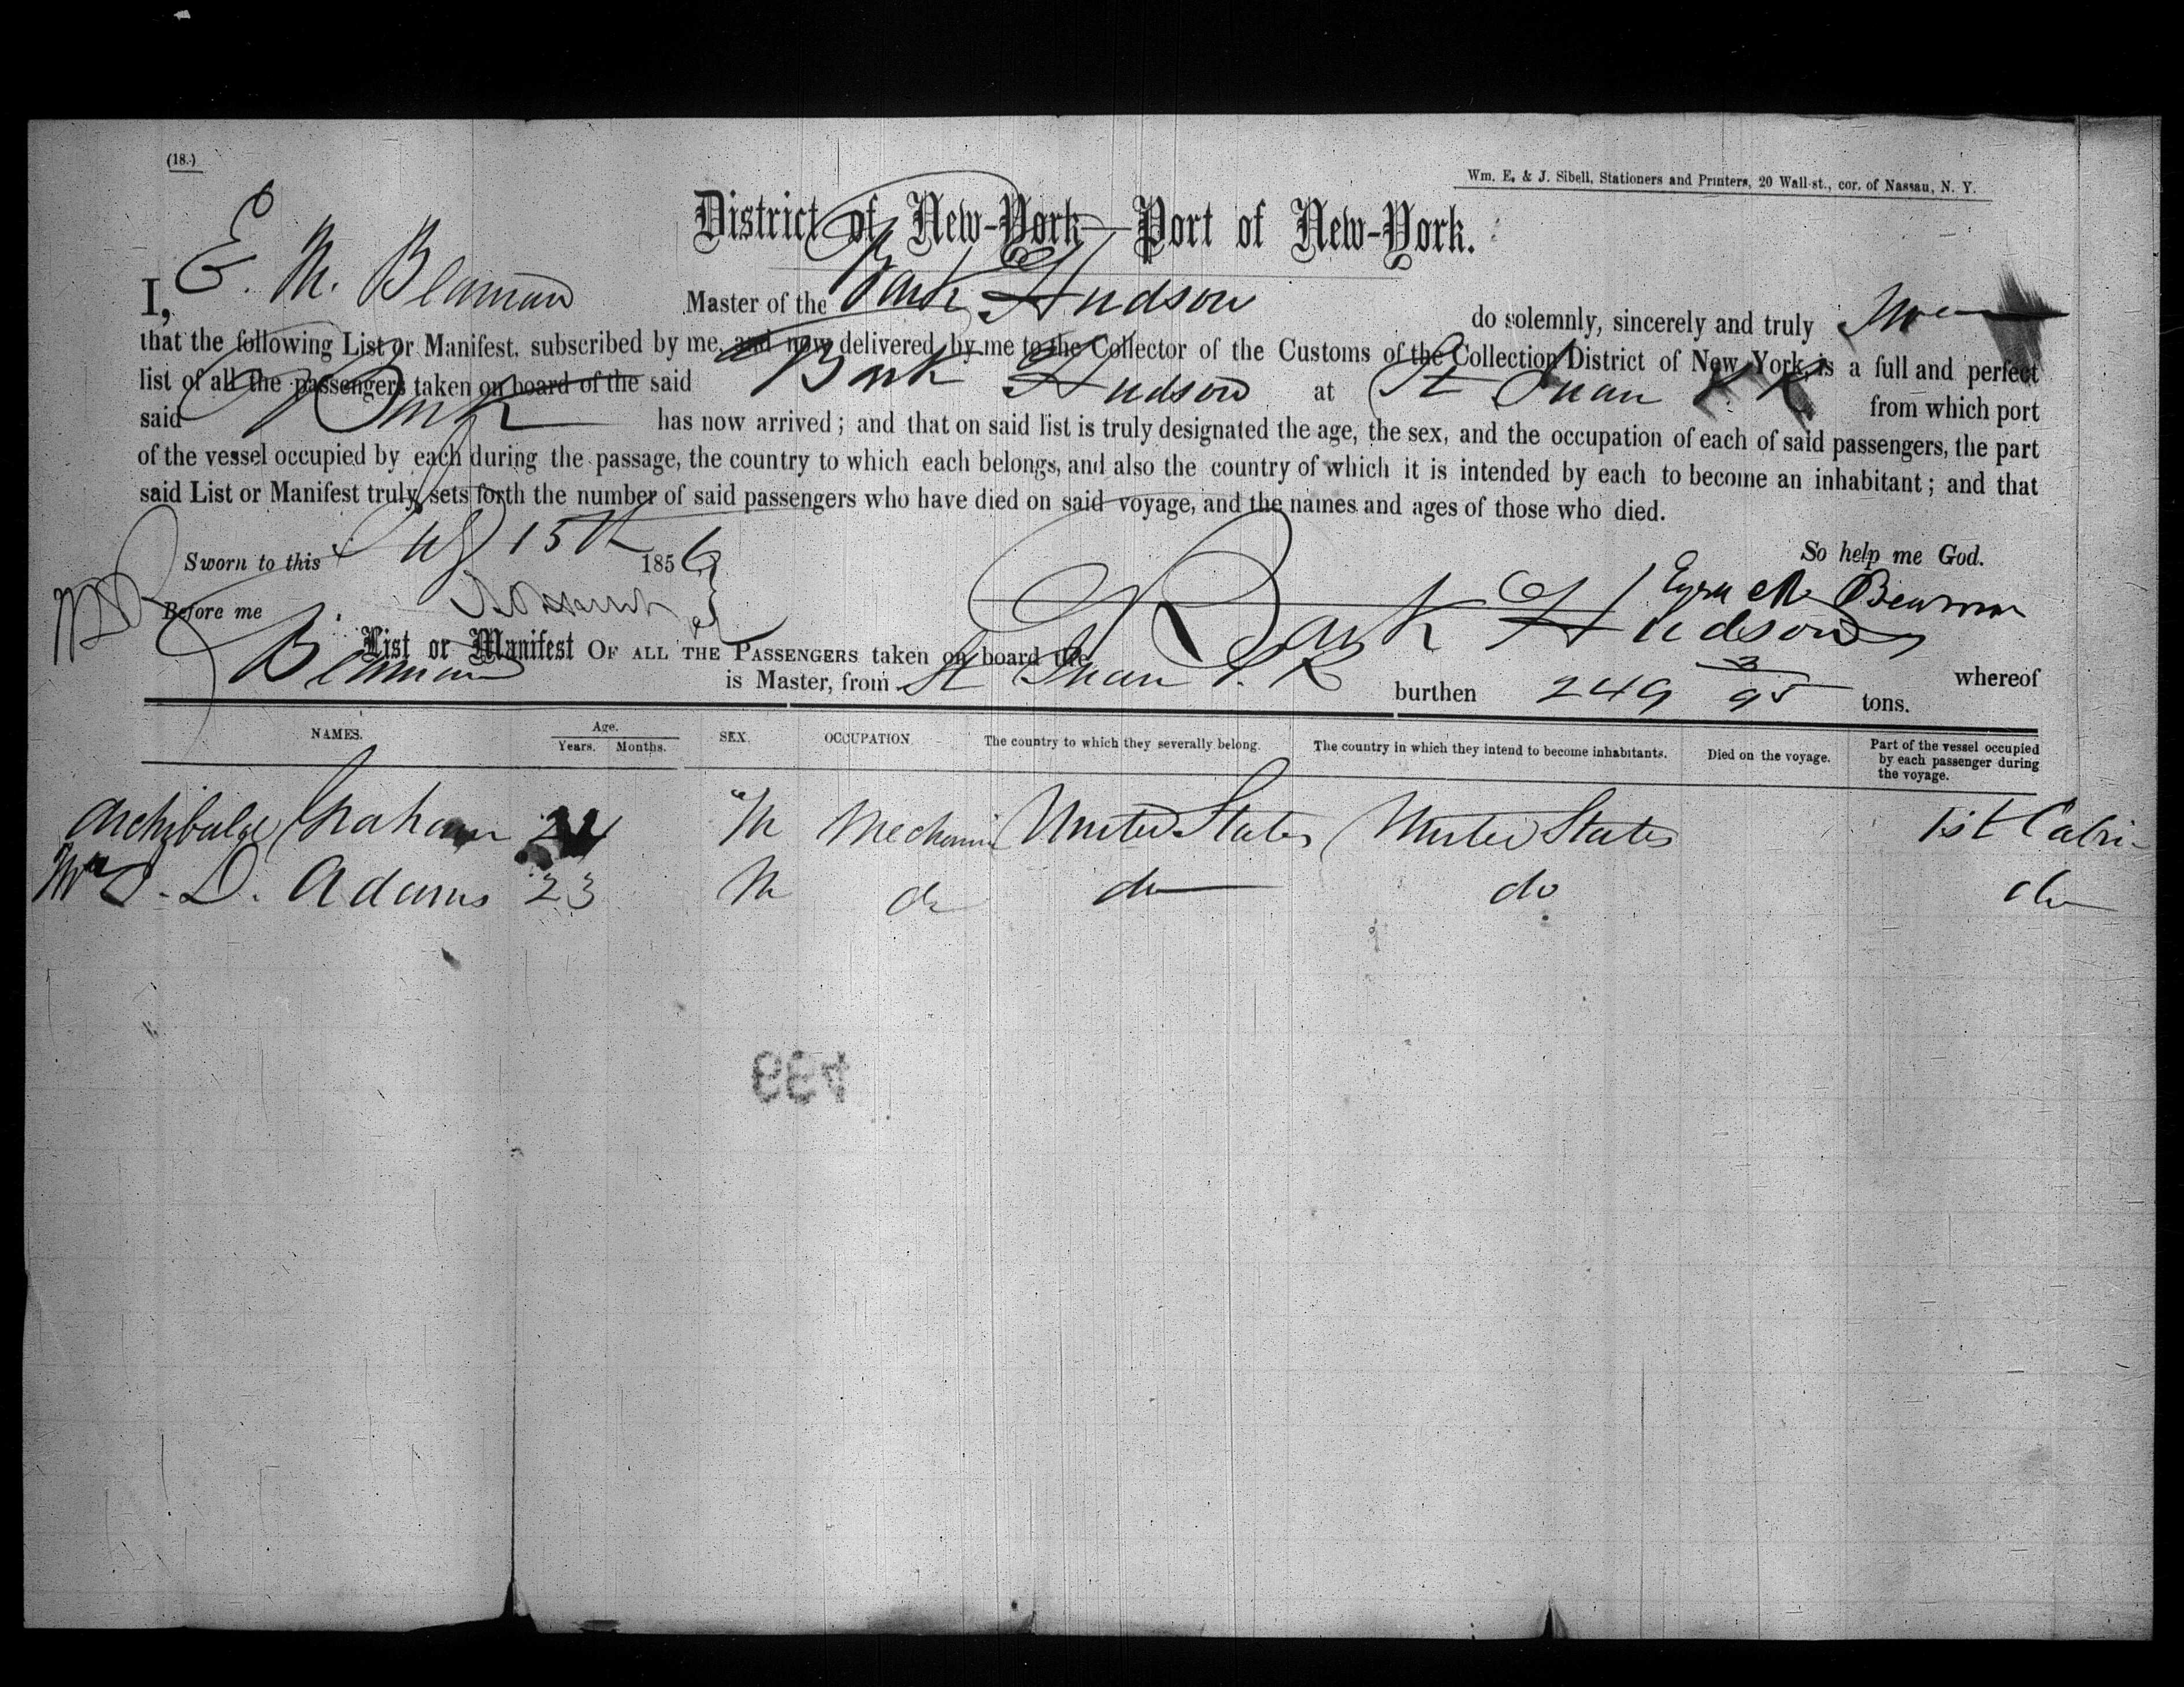 (18.)
Wm. E. & J. Sibell, Stationers and Printers, 20 Wall-st., cor. of Nassau, N. Y.
District of New-York—Port of New-York.
I, E. M. Beaman Master of the Bark Hudson do solemnly, sincerely and truly
that the following List or Manifest, subscribed by me, and now delivered by me to the Collector of the Customs of the Collection District of New York, is a full and perfect
list of all the passengers taken on board of the said Bark Hudson at St Juan from which port
said Bark has now arrived; and that on said list is truly designated the age, the sex, and the occupation of each of said passengers, the part
of the vessel occupied by each during the passage, the country to which each belongs, and also the country of which it is intended by each to become an inhabitant; and that
said List or Manifest truly sets forth the number of said passengers who have died on said voyage, and the names and ages of those who died.
So help me God.
Sworn to this July 15th 1856
Ezra M Beaman
Before me
List or Manifest OF ALL THE PASSENGERS taken on board the Bark Hudson whereof
Beaman is Master, from St Juan P. R burthen 249 3/95 tons.
NAMES. Age. Years. Months. SEX. OCCUPATION. The country to which they severally belong. The country in which they intend to become inhabitants. Died on the voyage. Part of the vessel occupied by each passenger during the voyage.
Archibald Graham M Mechanic United States United States 1st Cabin
D. Adams 23 M do do do do